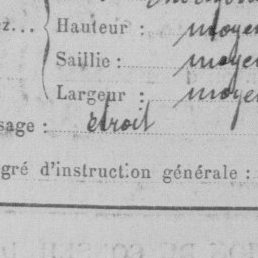 ez... { Hauteur : moyen
Saillie : moyen
Largeur : moyen
sage : étroit
gré d'instruction générale :